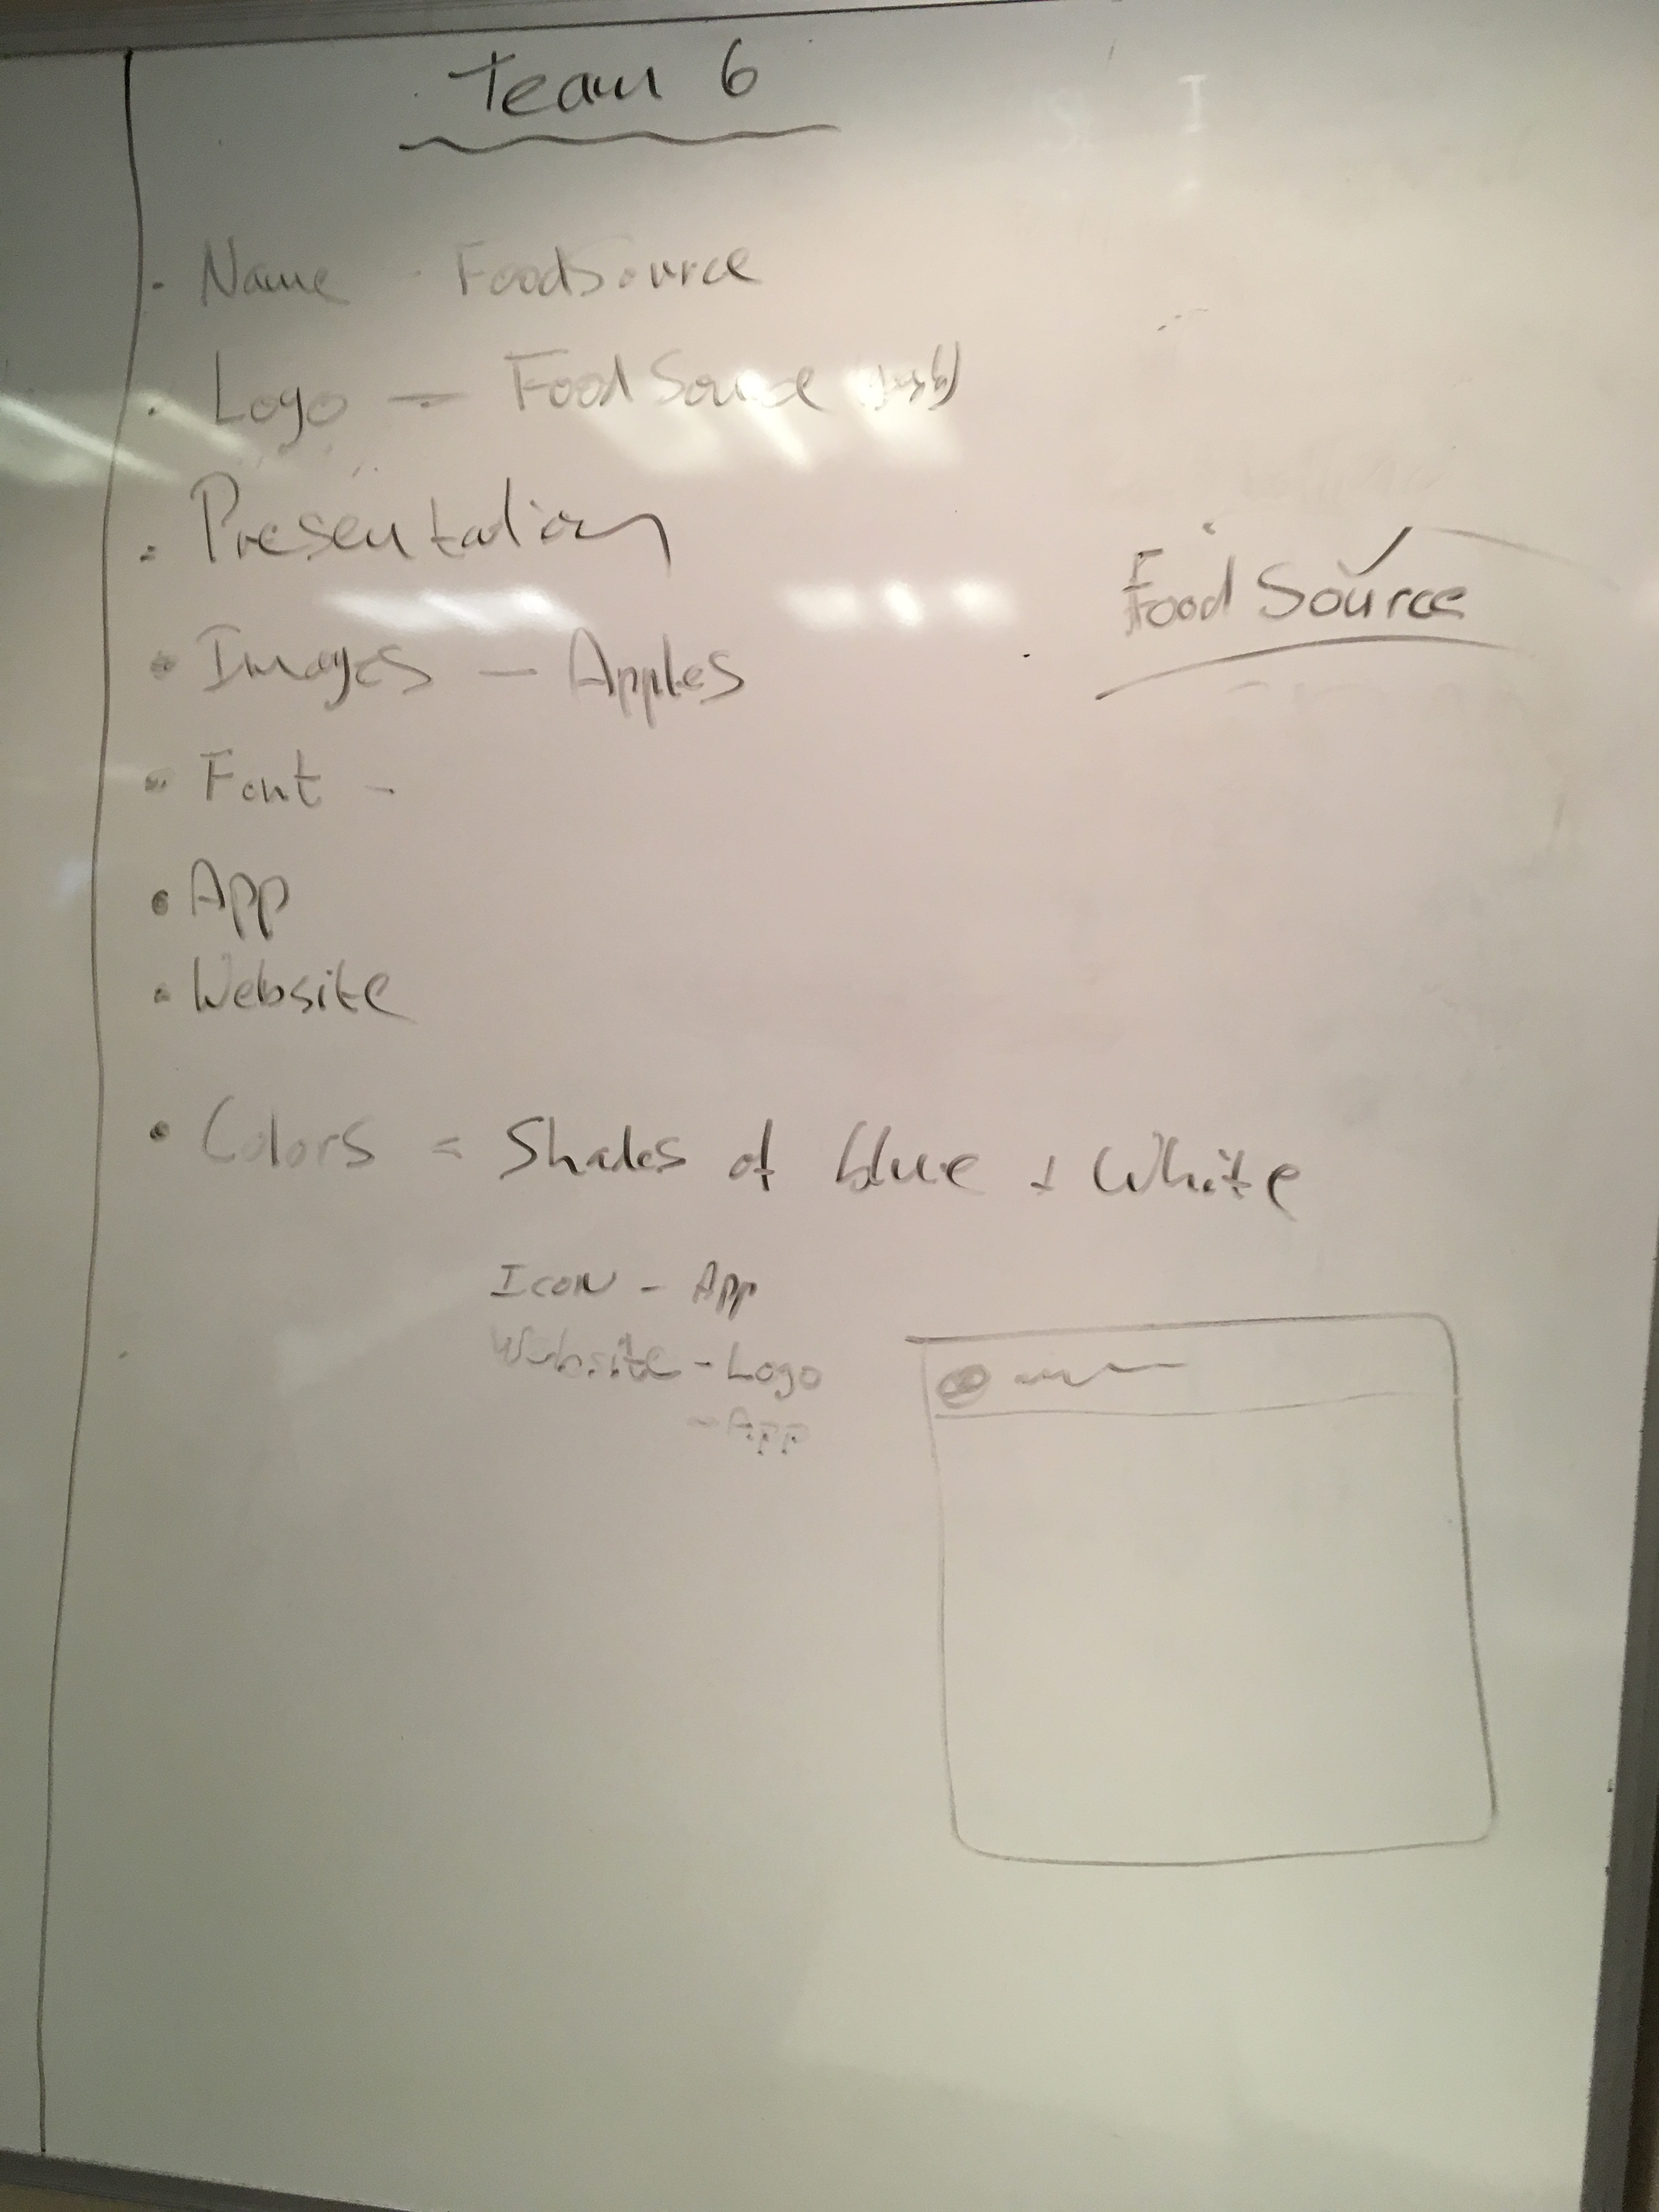 Team 6
• Name - FoodSource
• Logo - Food Source
• Presentation
• Images - Apples
Food Source
• Font -
• App
• Website
• Colors = Shades of blue + White
Icon - App
Website - Logo
- App